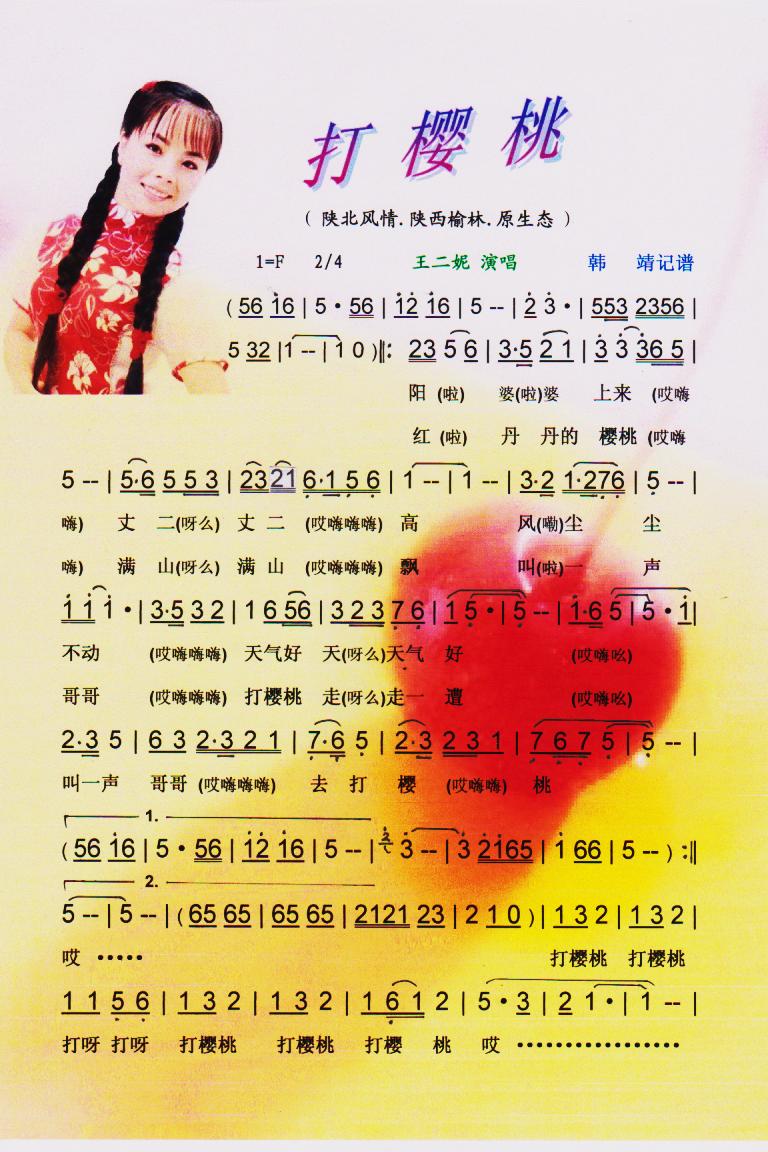 打樱桃
（ 陕北风情.陕西榆林.原生态 ）
1=F 2/4 王二妮 演唱 韩 靖记谱
( 56 16 | 5 · 56 | 12 16 | 5 -- | 2 3 · | 553 2356 |
5 32 | 1 -- | 1 0 ) ‖: 23 5 6 | 3·5 2 1 | 3 3 36 5 |
阳 (啦) 婆(啦)婆 上来 (哎嗨
红 (啦) 丹 丹的 樱桃 (哎嗨
5 -- | 5·6 5 5 3 | 23 21 6·1 5 6 | 1 -- | 1 -- | 3·2 1·276 | 5 -- |
嗨) 丈 二(呀么) 丈 二 (哎嗨嗨嗨) 高 风(嘞)尘 尘
嗨) 满 山(呀么) 满 山 (哎嗨嗨嗨) 飘 叫(啦)一 声
1 1 1 · | 3·5 3 2 | 1 6 56 | 3 2 3 7 6 | 1 5 · | 5 -- | 1·6 5 | 5 · 1 |
不动 (哎嗨嗨嗨) 天气好 天(呀么)天气 好 (哎嗨吆)
哥哥 (哎嗨嗨嗨) 打樱桃 走(呀么)走一 遭 (哎嗨吆)
2·3 5 | 6 3 2·3 2 1 | 7·6 5 | 2·3 2 3 1 | 7 6 7 5 | 5 -- |
叫一声 哥哥 (哎嗨嗨嗨) 去 打 樱 (哎嗨嗨) 桃
1.
( 56 16 | 5 · 56 | 12 16 | 5 -- | 3 -- | 3 2165 | 1 66 | 5 -- ) :‖
2.
5 -- | 5 -- | ( 65 65 | 65 65 | 2121 23 | 2 1 0 ) | 1 3 2 | 1 3 2 |
哎 ····· 打樱桃 打樱桃
1 1 5 6 | 1 3 2 | 1 3 2 | 1 6 1 2 | 5 · 3 | 2 1 · | 1 -- |
打呀 打呀 打樱桃 打樱桃 打樱 桃 哎 ·················